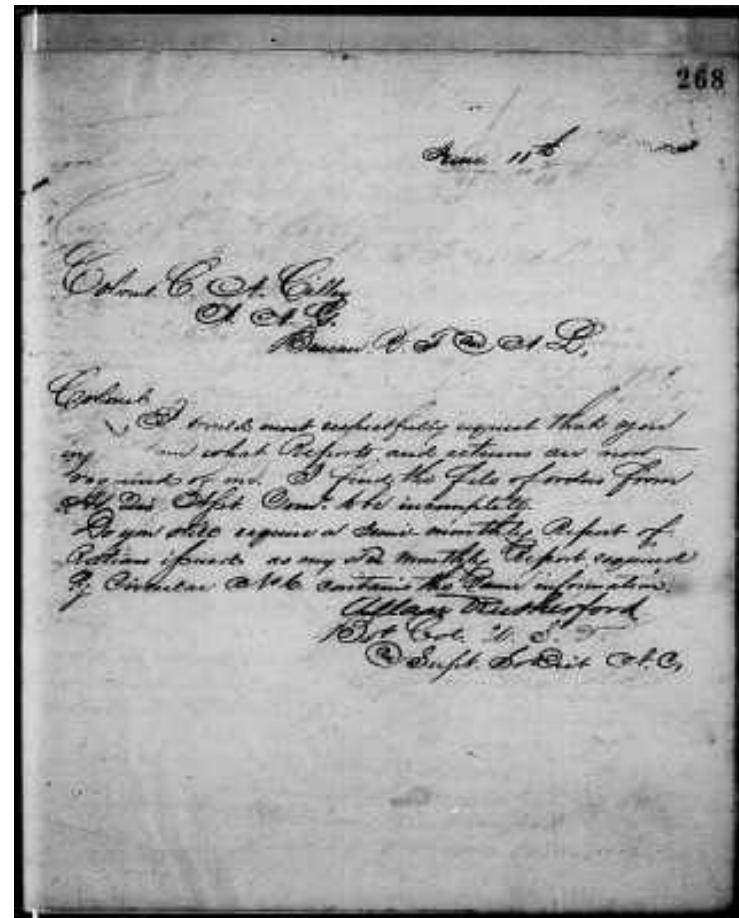 268
June 11th
Colonel C. A. Cilley
A. A. G.
Bureau R. F. & A. L,
Colonel
I would most respectfully request that you
what Reports and returns are now
required of me. I find the file of orders from
Asst Com. to be incomplete.
Do you still require a Semi monthly Report of
Rations issued as my Tri monthly Report required
By Circular No 6 contains the Same information.
Allan Rutherford
Bvt Col. U. S.
& Supt. So Dist N. C,